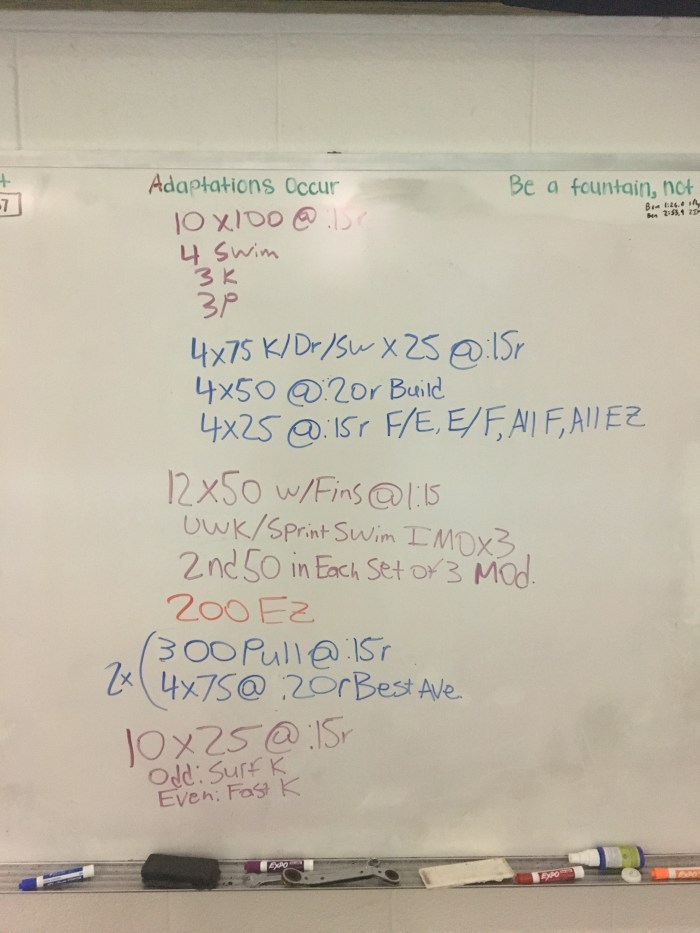 Adaptations Occur
Be a fountain, not
10 x 100 @ :15r
4 Swim
3 K
3P
4x75 K/Dr/Sw x 25 @ :15r
4x50 @ :20r Build
4x25 @ :15r F/E, E/F, All F, All EZ
12x50 w/Fins @ 1:15
UWK/Sprint Swim IMO x3
2nd 50 in Each Set of 3 Mod.
200 EZ
2x
300 Pull @ :15r
4x75 @ :20r Best Ave.
10 x 25 @ :15r
Odd: Surf K
Even: Fast K
EXPO
EXPO